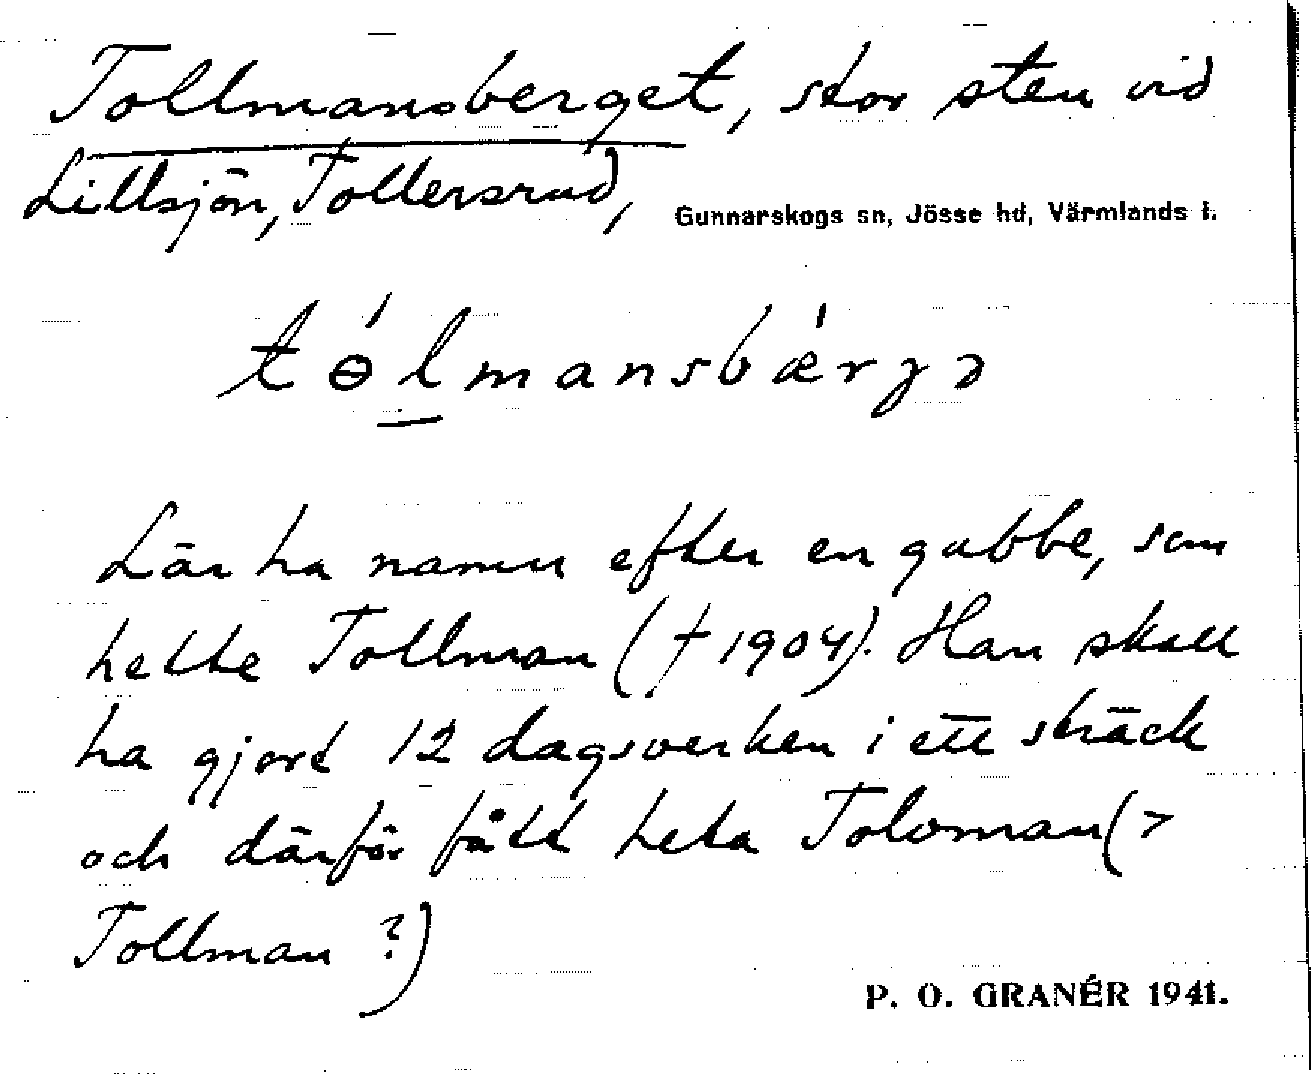 Tollmansberget, stor sten vid
Lillsjön, Tollersrud,
Gunnarskogs sn, Jösse hd, Värmlands l.
tɵ́lmansbǽrjə
Lär ha namn efter en gubbe, som
hette Tollman († 1904). Han skall
ha gjort 12 dagsverken i ett sträck
och därför fått heta Tolvman (>
Tollman ?)
P. O. GRANÉR 1941.